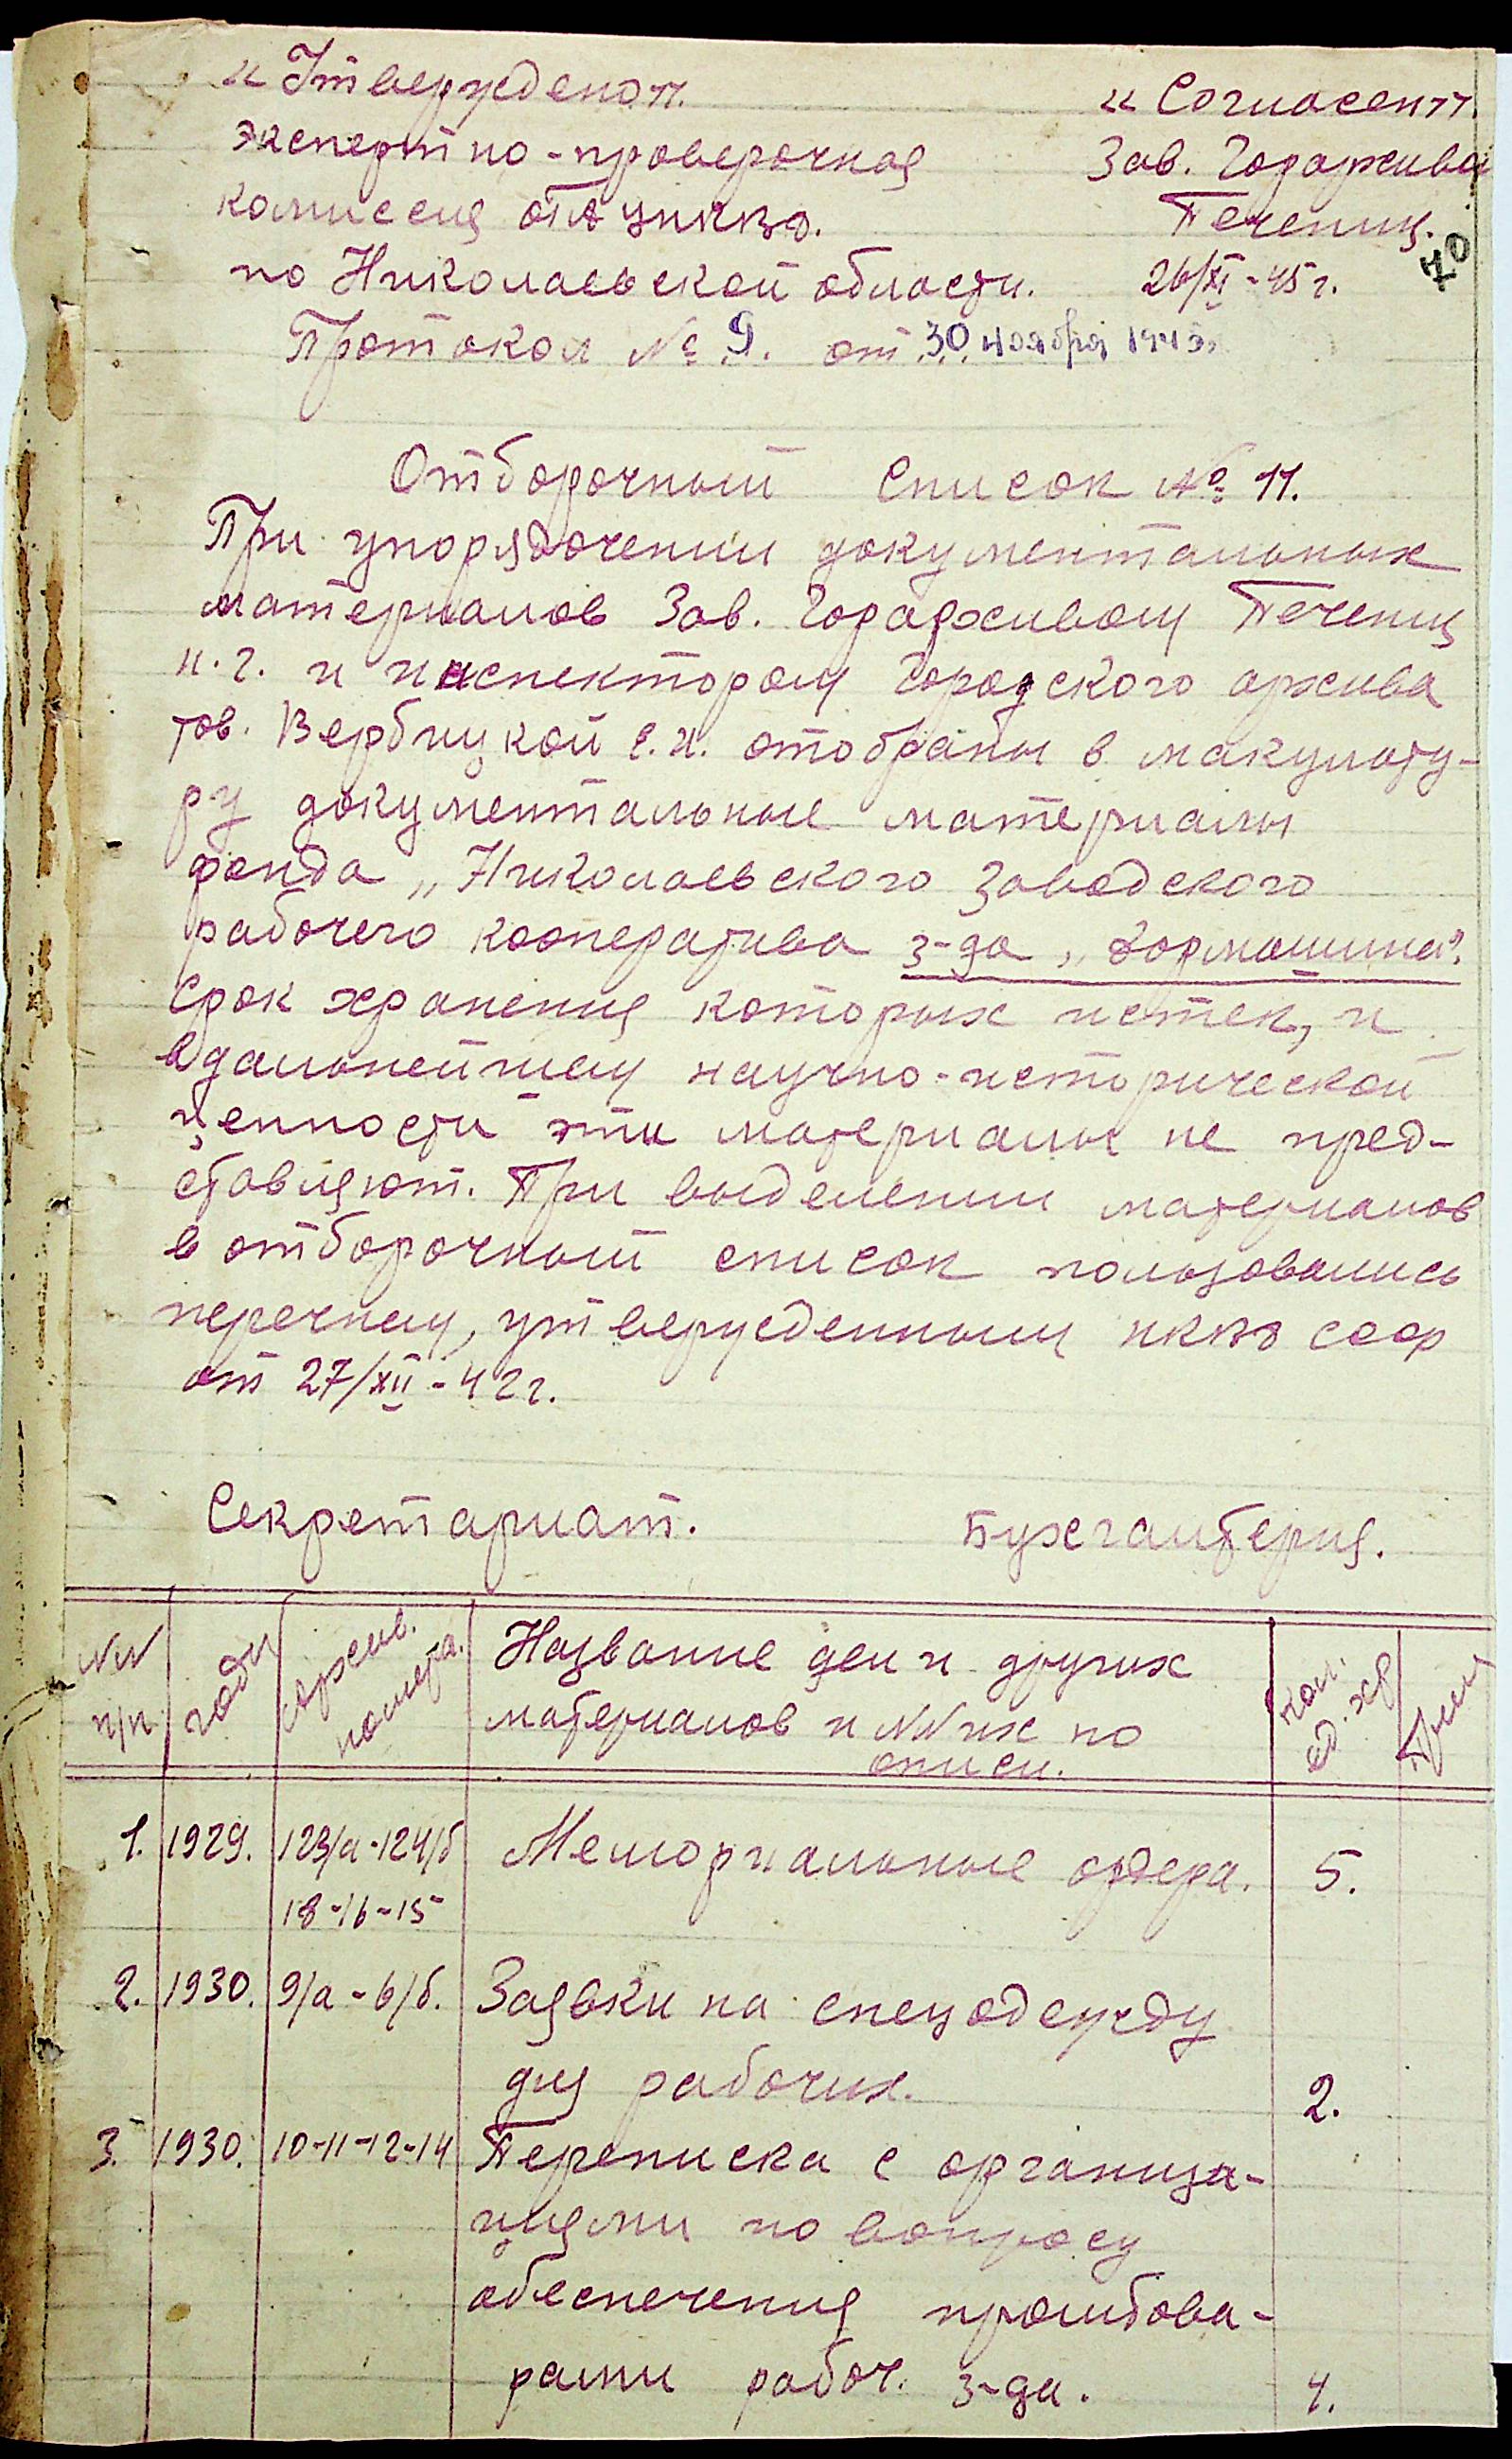 „Утверждено".
экспертно-проверочная
комиссия ОГА УНКВД.
по Николаевской области.
Протокол № 9. от 30 ноября 1945г.
„Согласен".
Зав. Горархивом
Печениц.
26/XI-45г.
70
Отборочный список № 11.
При упорядочении документальных
материалов Зав. Горархивом Печениц
Н.Г. и инспектором Городского архива
тов. Вербицкой Е.И. отобраны в макулату-
ру документальные материалы
фонда „Николаевского Заводского
рабочего кооператива з-да „Дормашина".
срок хранения которых истек, и
в дальнейшем научно-исторической
ценности эти материалы не пред-
ставляют. При выделении материалов
в отборочный список пользовались
перечнем, утвержденным НКВД СССР
от 27/XII-42г.
Секретариат. Бухгалтерия.
№№ п/п
годы
Архив. номера.
Название дел и других
материалов и №№ их по
описи.
кол. ед. хр
Прим
1. 1929. 123/а-124/б Мемориальные ордера. 5.
18-16-15
2. 1930. 9/а-6/б. Заявки на спецодежду
для рабочих. 2.
3. 1930. 10-11-12-14 Переписка с организа-
циями по вопросу
обеспечения промтова-
рами рабоч. з-да. 4.